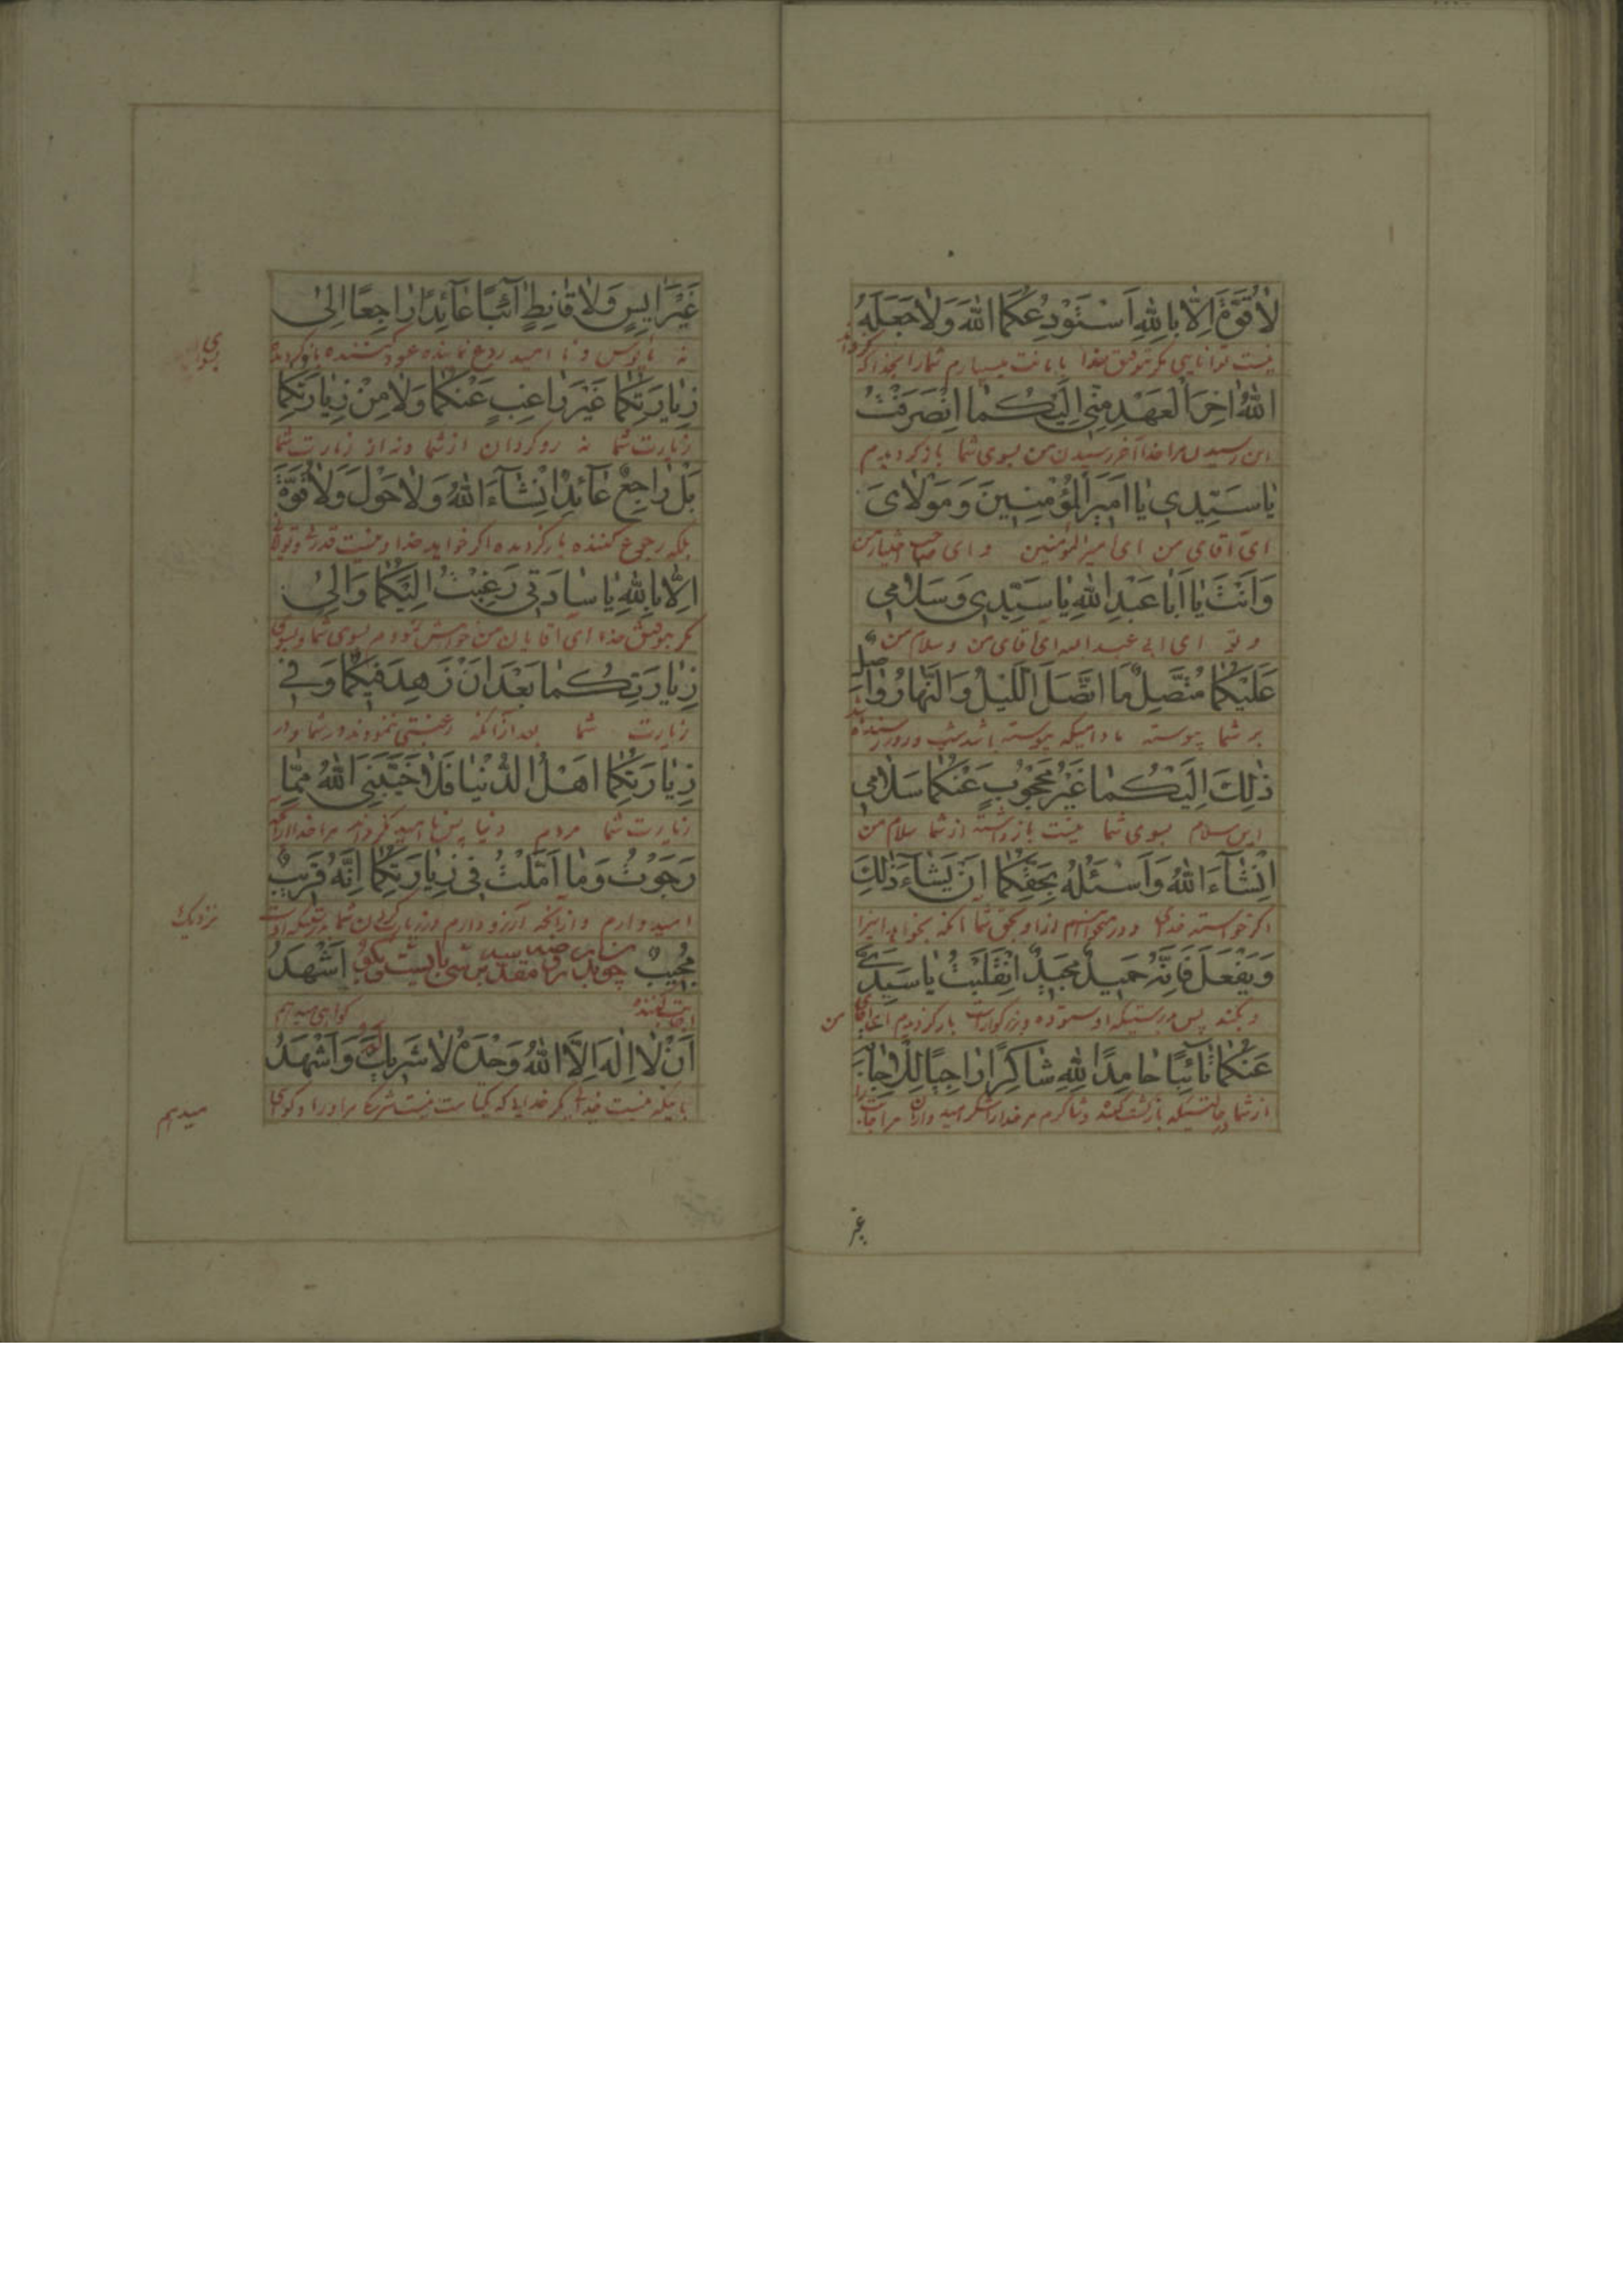 لٰا قُوَّةَ اِلّٰا بِاللّٰهِ اَسْتَوْدِعُكُمَا اللّٰهَ وَلٰا جَعَلَهُ
نیست توانایی مکر بتوفیق خدا بامانت میسپارم شما را بخدا و نکرداند
اللّٰهُ اٰخِرَ الْعَهْدِ مِنّٖي اِلَيْكُمٰا اِنْصَرَفْتُ
این رسیدن مرا خدا آخر رسیدن من بسوی شما بازکردیدم
يٰا سَيِّدٖي يٰا اَمٖيرَ الْمُؤْمِنٖينَ وَمَوْلٰايَ
ای آقای من ای امیرالمؤمنین و ای صاحب اختیار من
وَاَنْتَ يٰا اَبٰا عَبْدِ اللّٰهِ يٰا سَيِّدٖي وَسَلٰامٖي
و تو ای ابی عبدالله ای اقای من و سلام من
عَلَيْكُمٰا مُتَّصِلٌ مَا اتَّصَلَ اللَّيْلُ وَالنَّهٰارُ وٰاصِلٌ
بر شما پیوسته مادامیکه پیوسته باشد شب و روز رسنده باشد
ذٰلِكَ اِلَيْكُمٰا غَيْرُ مَحْجُوبٍ عَنْكُمٰا سَلٰامٖي
این سلام بسوی شما نیست بازداشته از شما سلام من
اِنْشٰٓاءَ اللّٰهُ وَاَسْئَلُهُ بِحَقِّكُمٰا اَنْ يَشٰٓاءَ ذٰلِكَ
اکر خواسته خدای و درمیخواهم ازاو بحق شما انکه بخواهد اینرا
وَيَفْعَلَ فَاِنَّهُ حَمٖيدٌ مَجٖيدٌ اِنْقَلَبْتُ يٰا سَيِّدَيَّ
و بکند پس بدرستیکه او ستوده و بزرکوارست بازکردیدم ای اقای من
عَنْكُمٰا تٰائِبًا حٰامِدًا لِلّٰهِ شٰاكِرًا رٰاجِيًا لِلْاِجٰابَةِ
از شما درحالتیکه بازکشت کننده و شاکرم مر خدا را شکر امیدوارم مر اجابت را
غیر
غَيْرَ اٰيِسٍ وَلٰا قٰانِطٍ اٰئِبًا عٰائِدًا رٰاجِعًا اِلىٰ
نه مأیوس و نا امید رجوع نماینده عود کننده بازکردیده بسوی
زِيٰارَتِكُمٰا غَيْرَ رٰاغِبٍ عَنْكُمٰا وَلٰا مِنْ زِيٰارَتِكُمٰا
زیارت شما نه روکردان از شما و نه از زیارت شما
بَلْ رٰاجِعٌ عٰائِدٌ اِنْشٰٓاءَ اللّٰهُ وَلٰا حَوْلَ وَلٰا قُوَّةَ
بلکه رجوع کننده بازکردیده اکر خواهد خدا و نیست قدرت و قوت
اِلّٰا بِاللّٰهِ يٰا سٰادَتٖي رَغِبْتُ اِلَيْكُمٰا وَاِلىٰ
مکر بتوفیق خدا ای اقایان من خواهش نمودم بسوی شما و بسوی
زِيٰارَتِكُمٰا بَعْدَ اَنْ زَهِدَ فٖيكُمٰا وَفٖي
زیارت شما بعد ازانکه رغبتی ننمودند در شما و در
زِيٰارَتِكُمٰا اَهْلُ الدُّنْيٰا فَلٰا خَيَّبَنِيَ اللّٰهُ مِمّٰا
زیارت شما مردم دنیا پس نا امید نکرداند مرا خدا ازانچه
رَجَوْتُ وَمٰا اَمَّلْتُ فٖي زِيٰارَتِكُمٰا اِنَّهُ قَرٖيبٌ
امیدوارم و ازانچه آرزو دارم در زیارت کردن شما بدرستیکه اوست نزدیک
مُجٖيبٌ اَشْهَدُ
اجابت کننده کواهی میدهم
اَنْ لٰا اِلٰهَ اِلَّا اللّٰهُ وَحْدَهُ لٰا شَرٖيكَ لَهُ وَاَشْهَدُ
باینکه نیست خدا مکر خدایا که یکتاست نیست شریک مر او را و کواهی میدهم